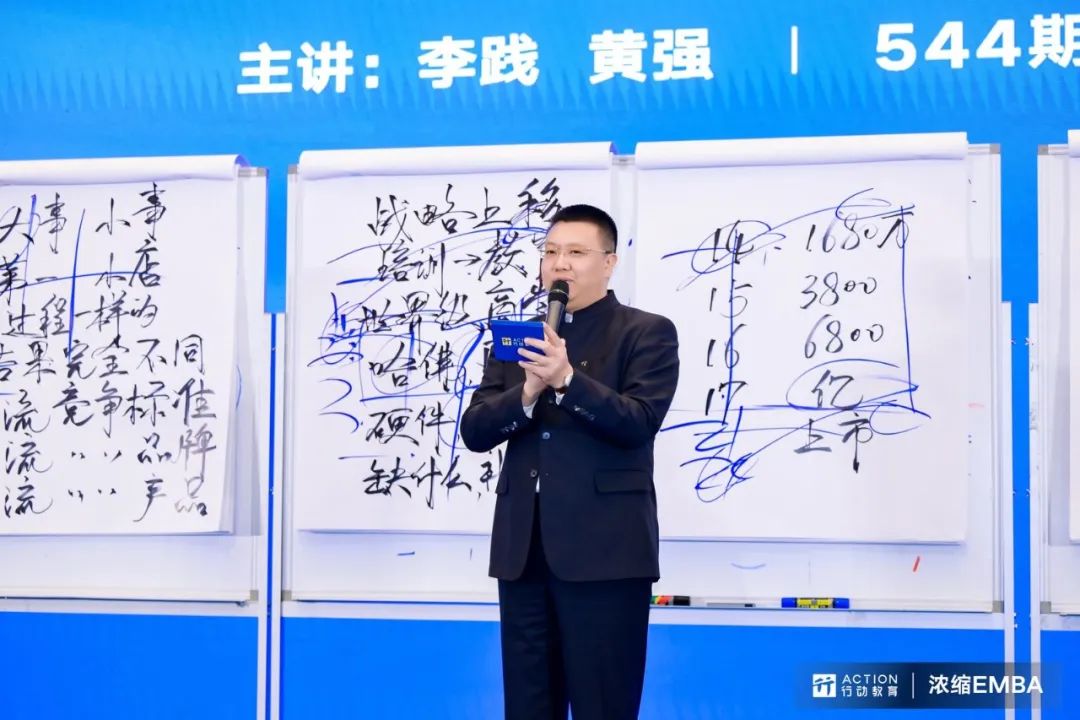 主讲：李践 黄强 | 544期
大事 小事
第一 小店
过程一样的
结果完全不同
流竞争标准
流〃〃品牌
流〃〃产品
战略上移
培训→教
世界级 商学
哈佛
硬件
缺什么,补
14 1680万
15 3800
16 6800
17 亿
上市
ACTION
行动教育
ACTION
行动教育 | 浓缩EMBA